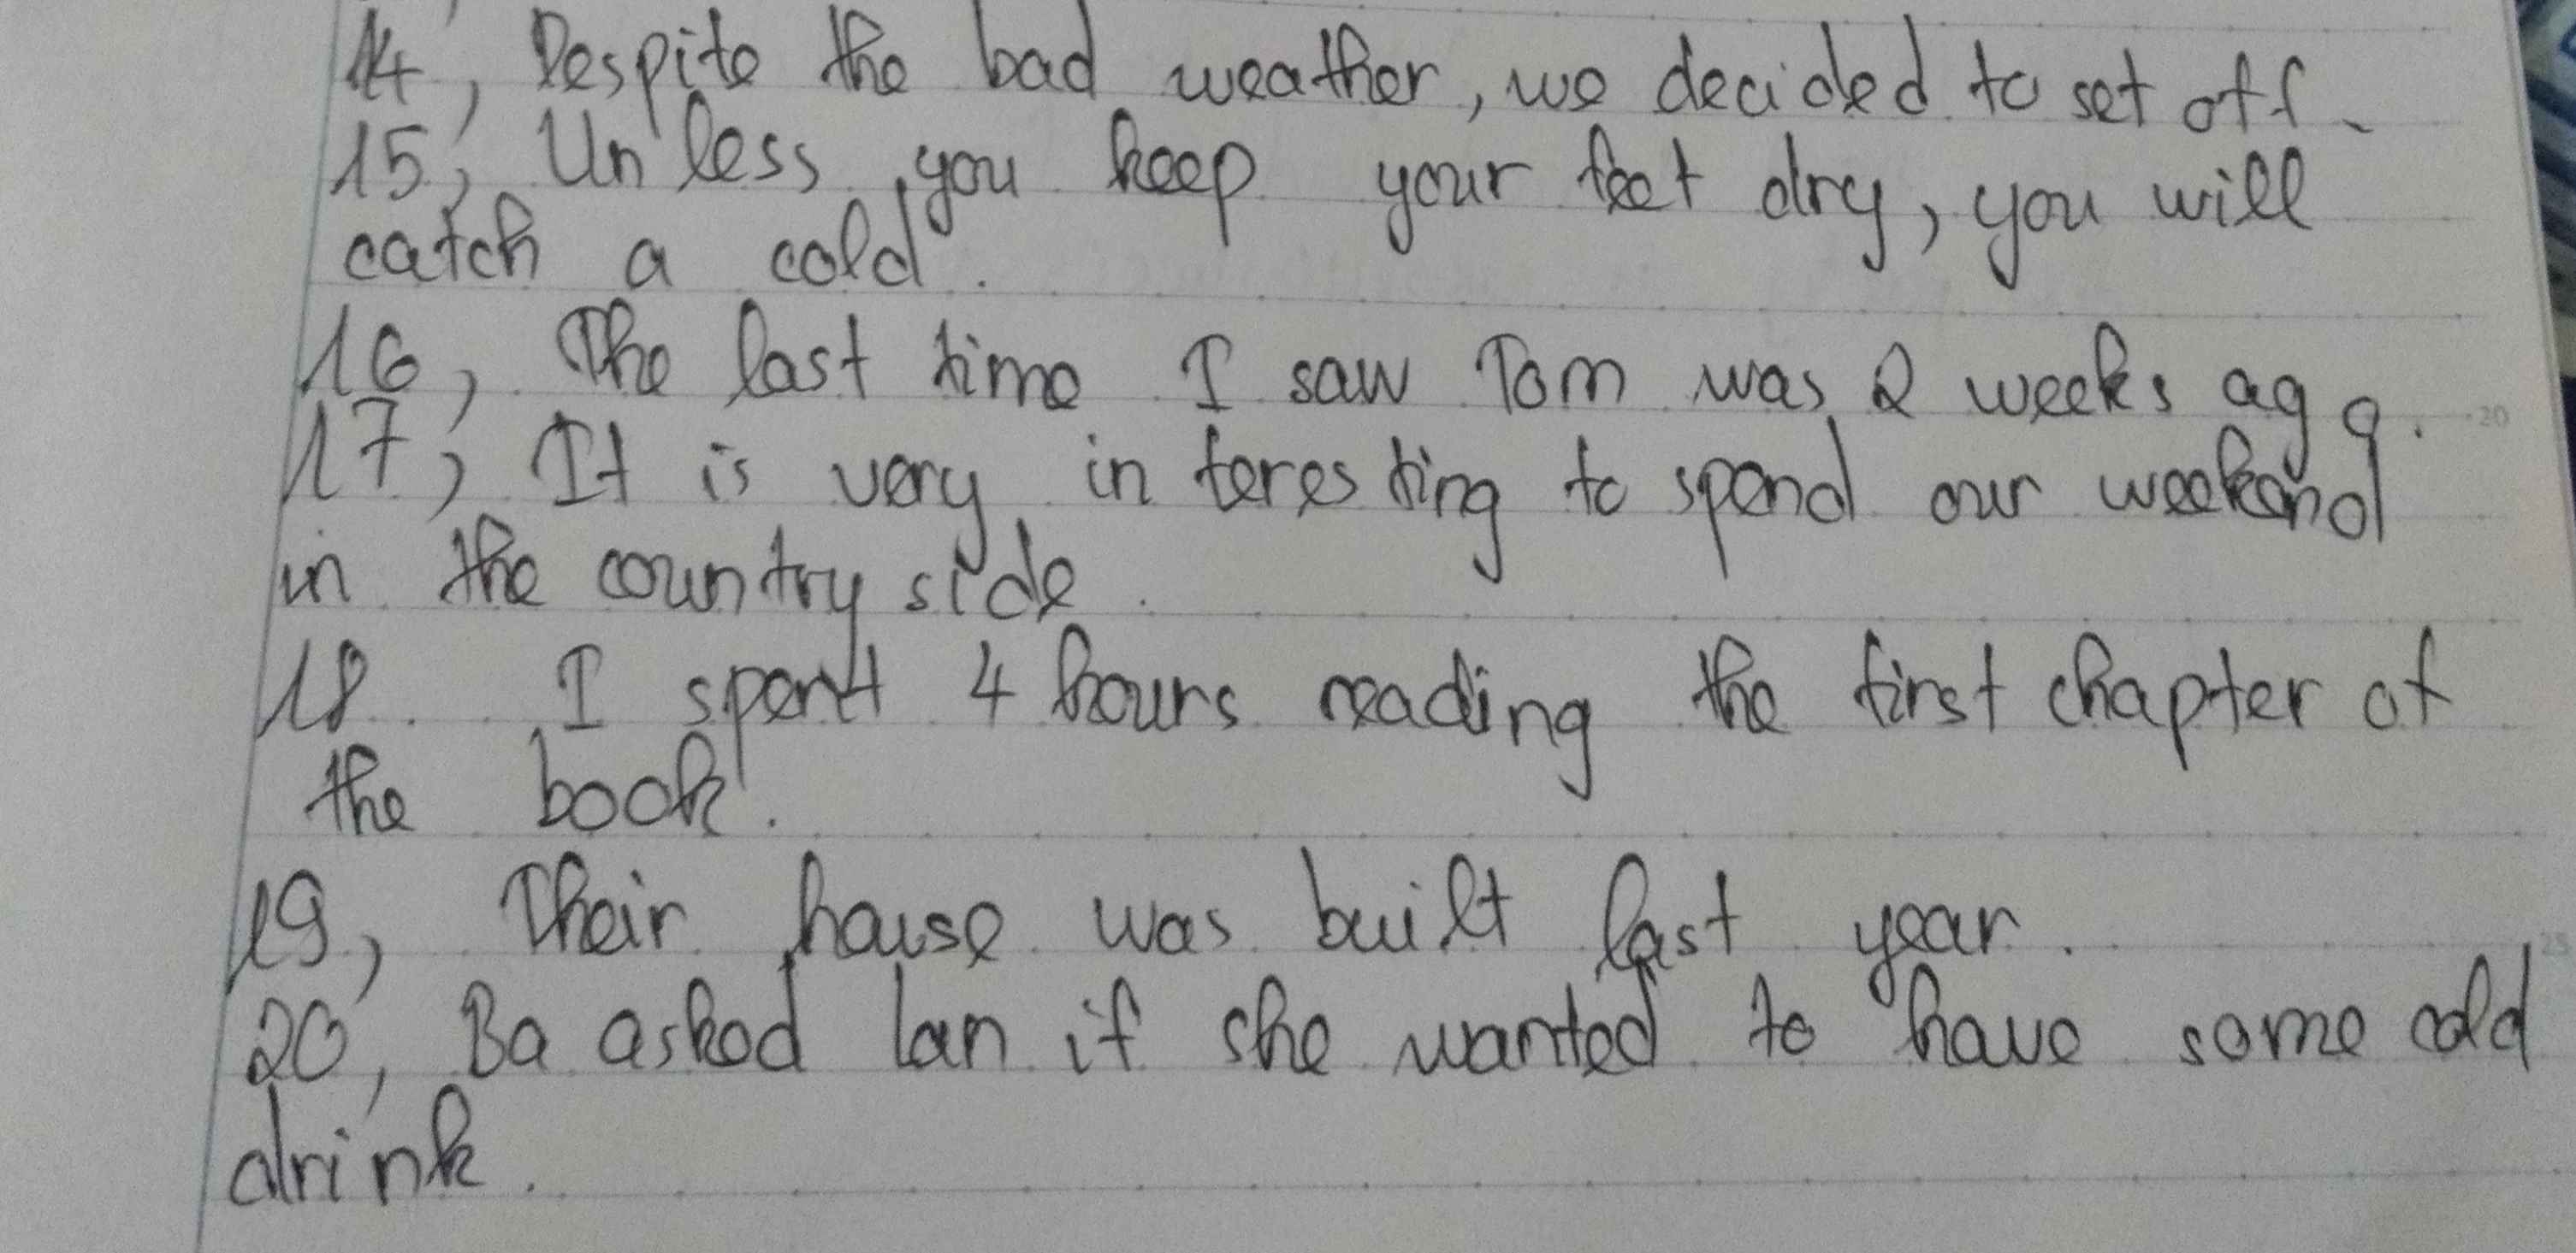 14, Despite the bad weather, we decided to set off.
15, Unless you keep your feet dry, you will
catch a cold.
16, The last time I saw Tom was 2 weeks ago.
17, It is very interesting to spend our weekend
in the countryside.
18. I spent 4 hours reading the first chapter of
the book.
19, Their house was built last year.
20, Ba asked Lan if she wanted to have some cold
drink.